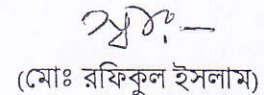 স্বাঃ-
(মোঃ রফিকুল ইসলাম)